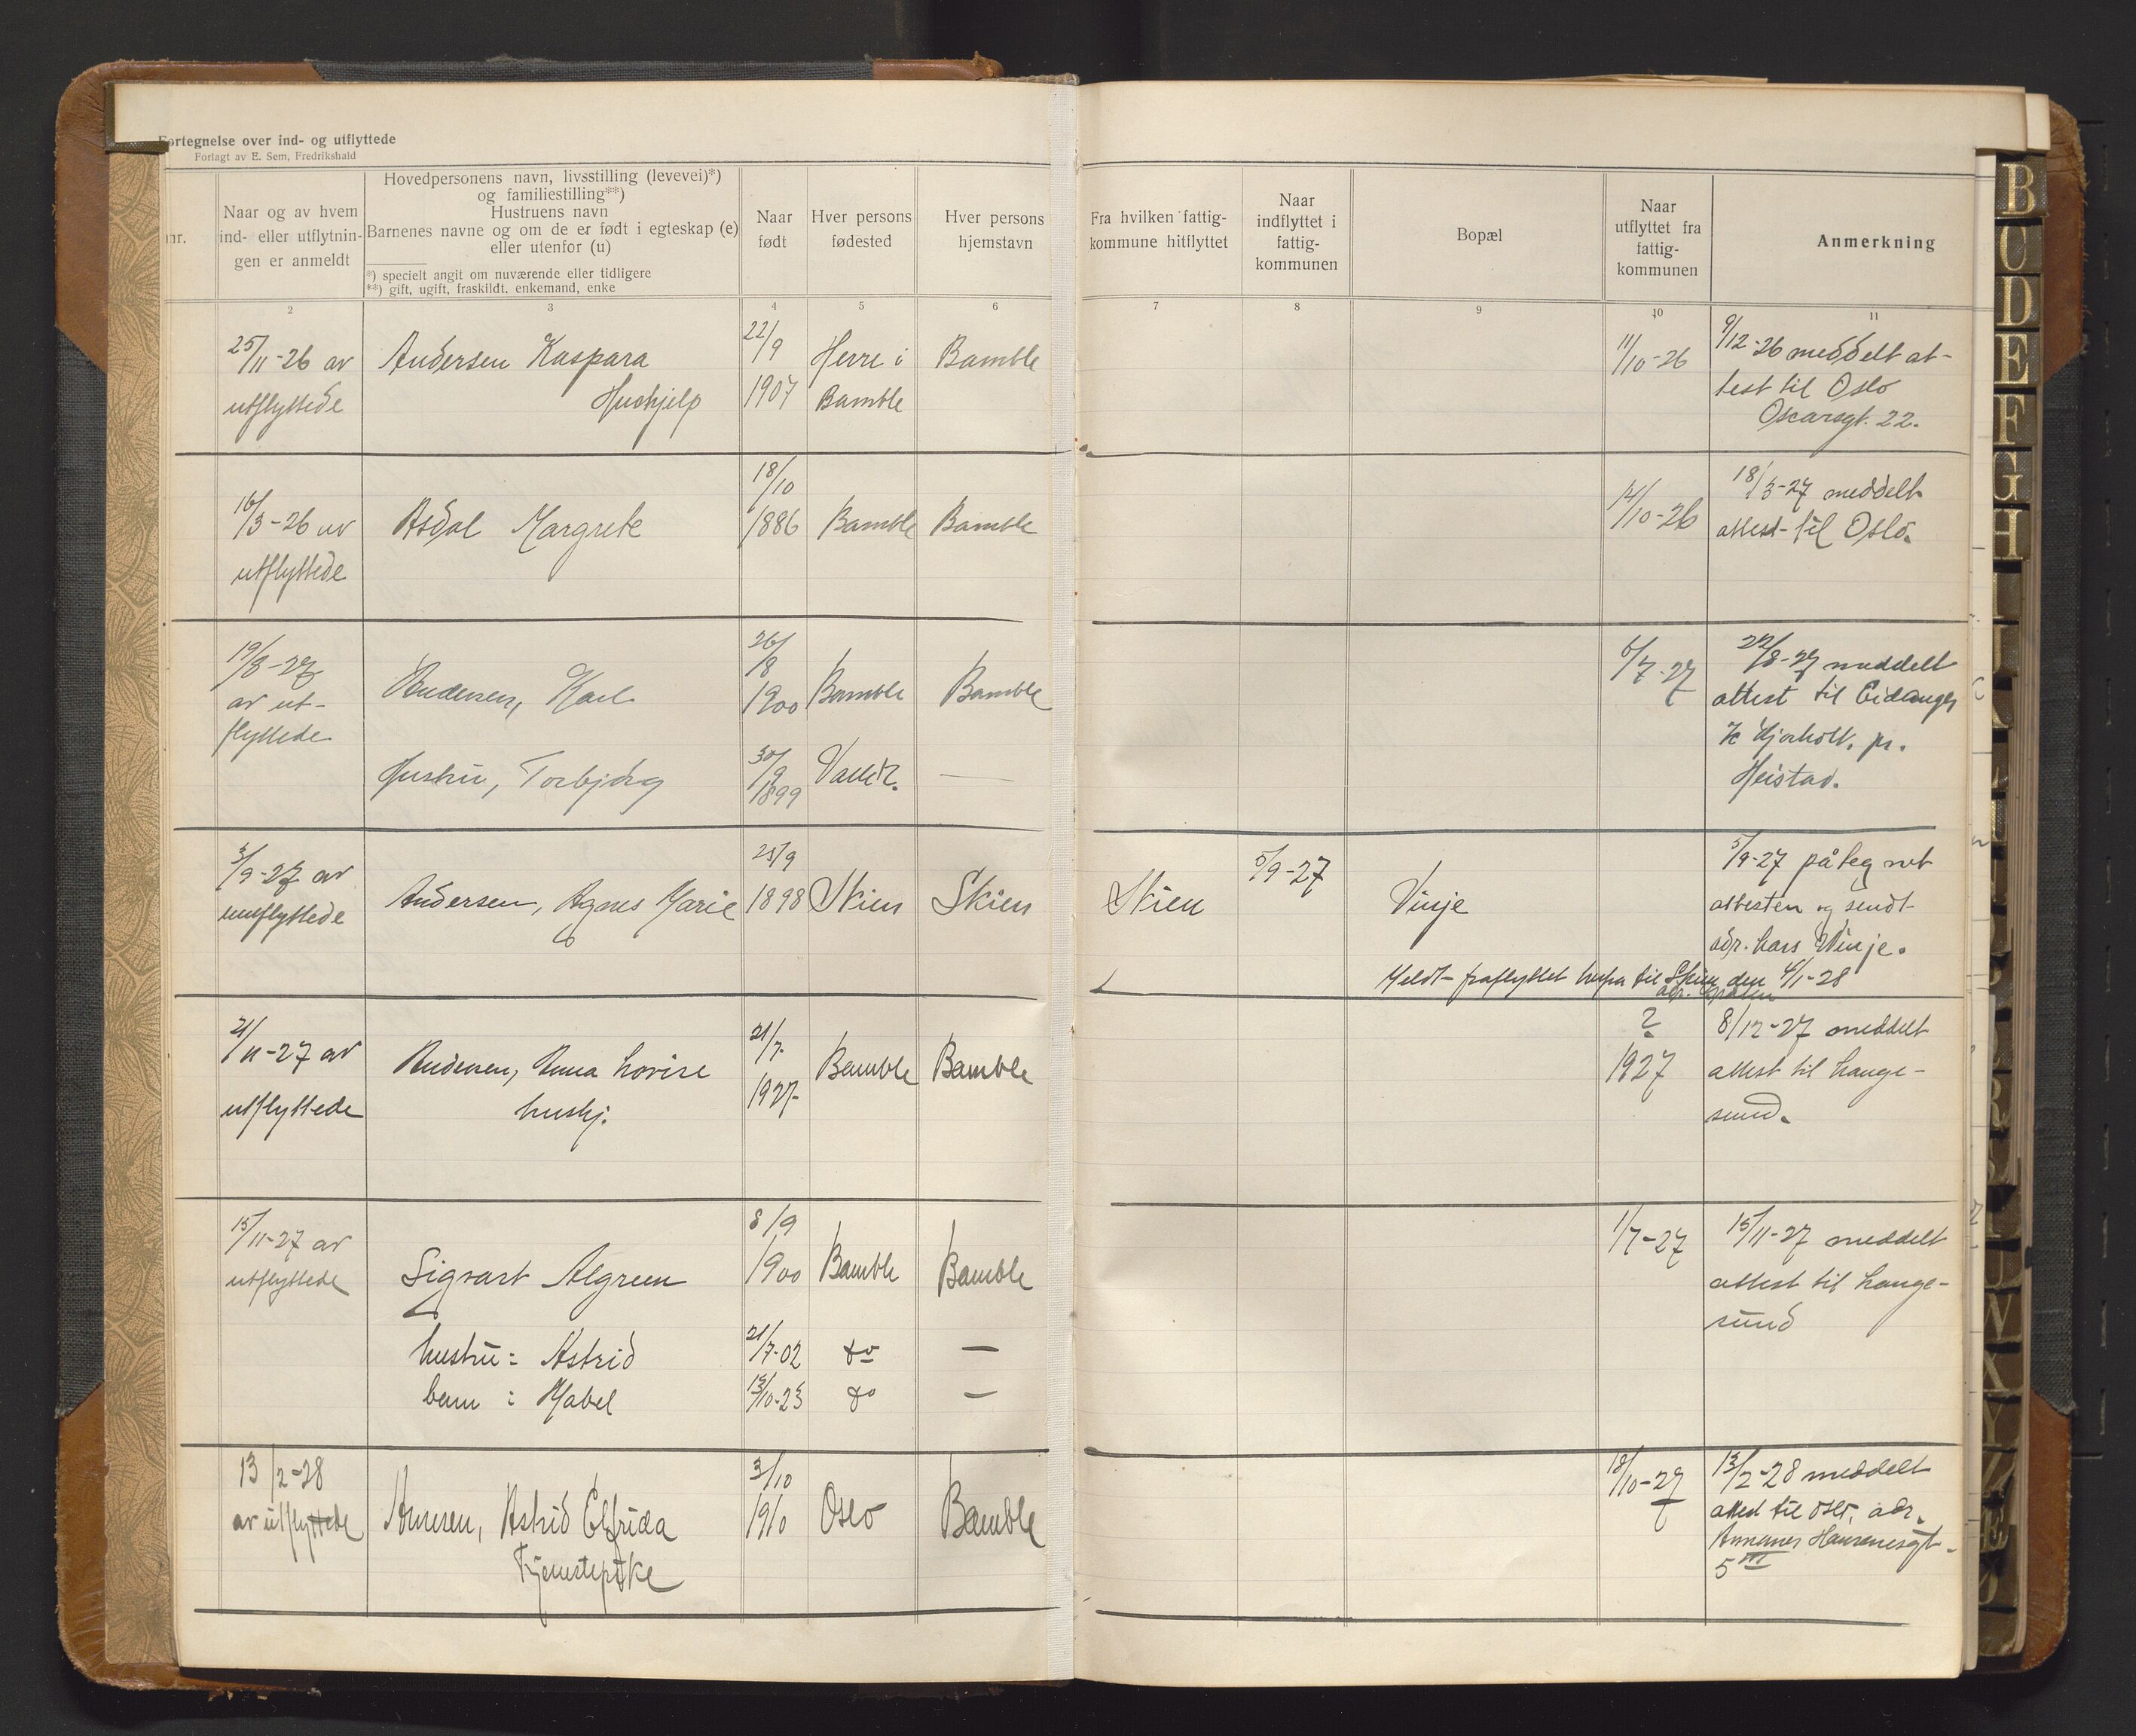 Fortegnelse over ind- og utflyttede
Forlagt av E. Sem, Fredrikshald
nr.
Naar og av hvem
ind- eller utflytnin-
gen er anmeldt
Hovedpersonens navn, livsstilling (levevei)*)
og familiestilling**)
Hustruens navn
Barnenes navne og om de er født i egteskap (e)
eller utenfor (u)
*) specielt angit om nuværende eller tidligere
**) gift, ugift, fraskildt, enkemand, enke
Naar
født
Hver persons
fødested
Hver persons
hjemstavn
Fra hvilken fattig-
kommune hitflyttet
Naar
indflyttet i
fattig-
kommunen
Bopæl
Naar
utflyttet fra
fattig-
kommunen
Anmerkning
2 3 4 5 6 7 8 9 10 11
25/11-26 av
utflyttede
Andersen Kaspara
Hushjelp
22/9
1907
Herre i
Bamble
Bamble
11/10-26
9/12-26 meddelt at-
test til Oslo
Oscarsgt. 22.
16/3-26 av
utflyttede
Asdal Margrete
18/10
1886
Bamble
Bamble
14/10-26
18/3-27 meddelt
attest til Oslo.
19/8-27
av ut-
flyttede
Andersen, Karl
26/8
1900
Bamble
Bamble
Hustru, Torbjørg
30/9
1899
—
6/7-27
22/8-27 meddelt
attest til Eidanger
pr.
Heistad.
3/9-27 av
Andersen, Agnes Marie
25/9
1898
Skien
Skien
Skien
5/9-27
Vinje
5/9-27 påtegnet
attesten og sendt
adr. Lars Vinje.
Meldt fraflyttet til Skien den 4/1-28
21/11-27 av
utflyttede
Andersen, Anna Lovise
hushj.
21/7-
1927-
Bamble
Bamble
?
1927
8/12-27 meddelt
attest til Lange-
sund.
15/11-27 av
utflyttede
Sigvart Algreen
8/9
1900
Bamble
Bamble
hustru: Astrid
21/7-02
do
—
barn: Mabel
13/10-23
do
—
1/7-27
15/11-27 meddelt
attest til Lange-
sund
13/2-28
av utflyttede
Amesen, Astrid Elfrida
Tjenestepike
3/10
1910
Oslo
Bamble
18/10-27
13/2-28 meddelt
attest til Oslo, adr.
5 III
B
C
D
E
F
G
H
I
J
K
L
W
X
Y